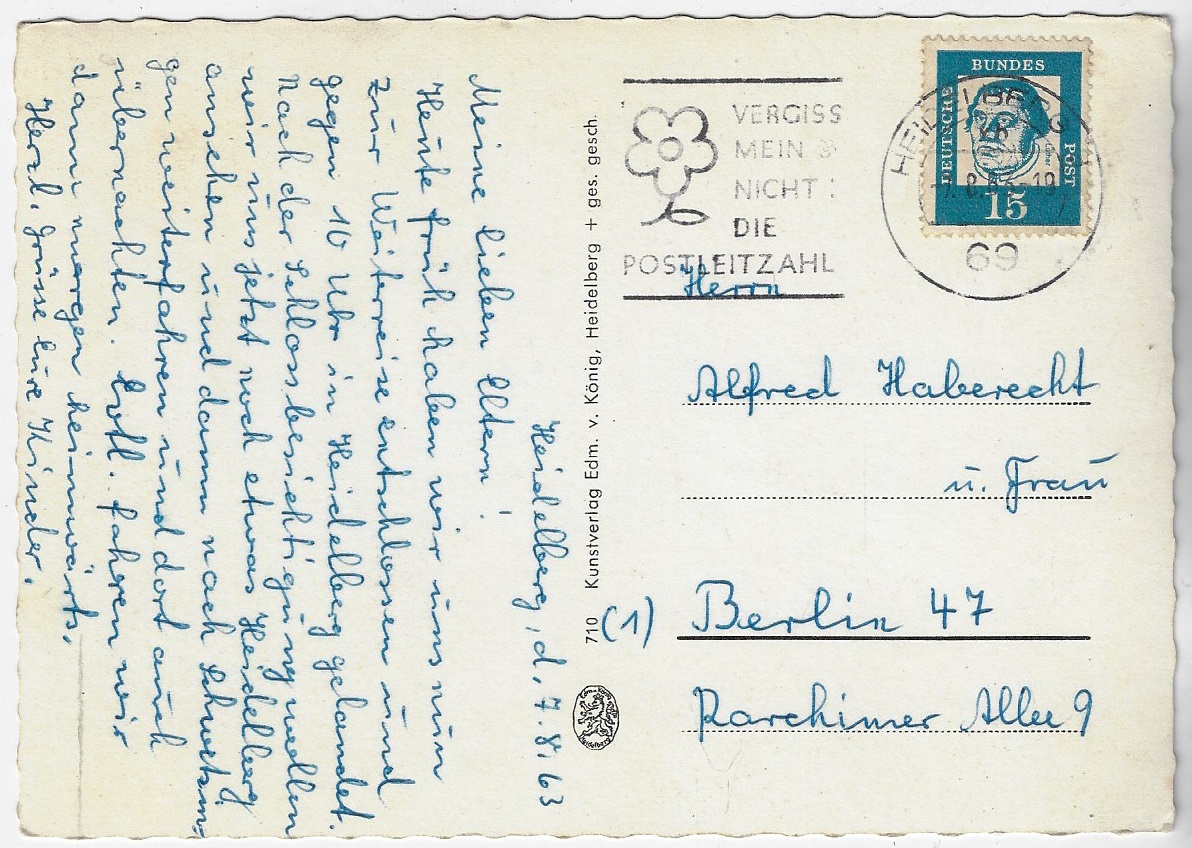 Heidelberg, d. 7.8.63
Meine lieben Eltern!
Heute früh haben wir uns nun
zur Weiterreise entschlossen und
gegen 10 Uhr in Heidelberg gelandet.
Nach der Schlossbesichtigung wollen
wir uns jetzt noch etwas Heidelberg
ansehen und dann nach Schwetzin=
gen weiterfahren und dort auch
übernachten. Evtl. fahren wir
dann morgen heimwärts.
Herzl. Grüsse Eure Kinder.
710 Kunstverlag Edm. v. König, Heidelberg + ges. gesch.
Edm. König
Heidelberg
VERGISS
MEIN
NICHT :
DIE
POSTLEITZAHL
DEUTSCHE
BUNDES
POST
15
HEIDELBERG
-7.8.63-19
69
Herrn
Alfred Haberecht
u. Frau
(1) Berlin 47
Parchimer Allee 9